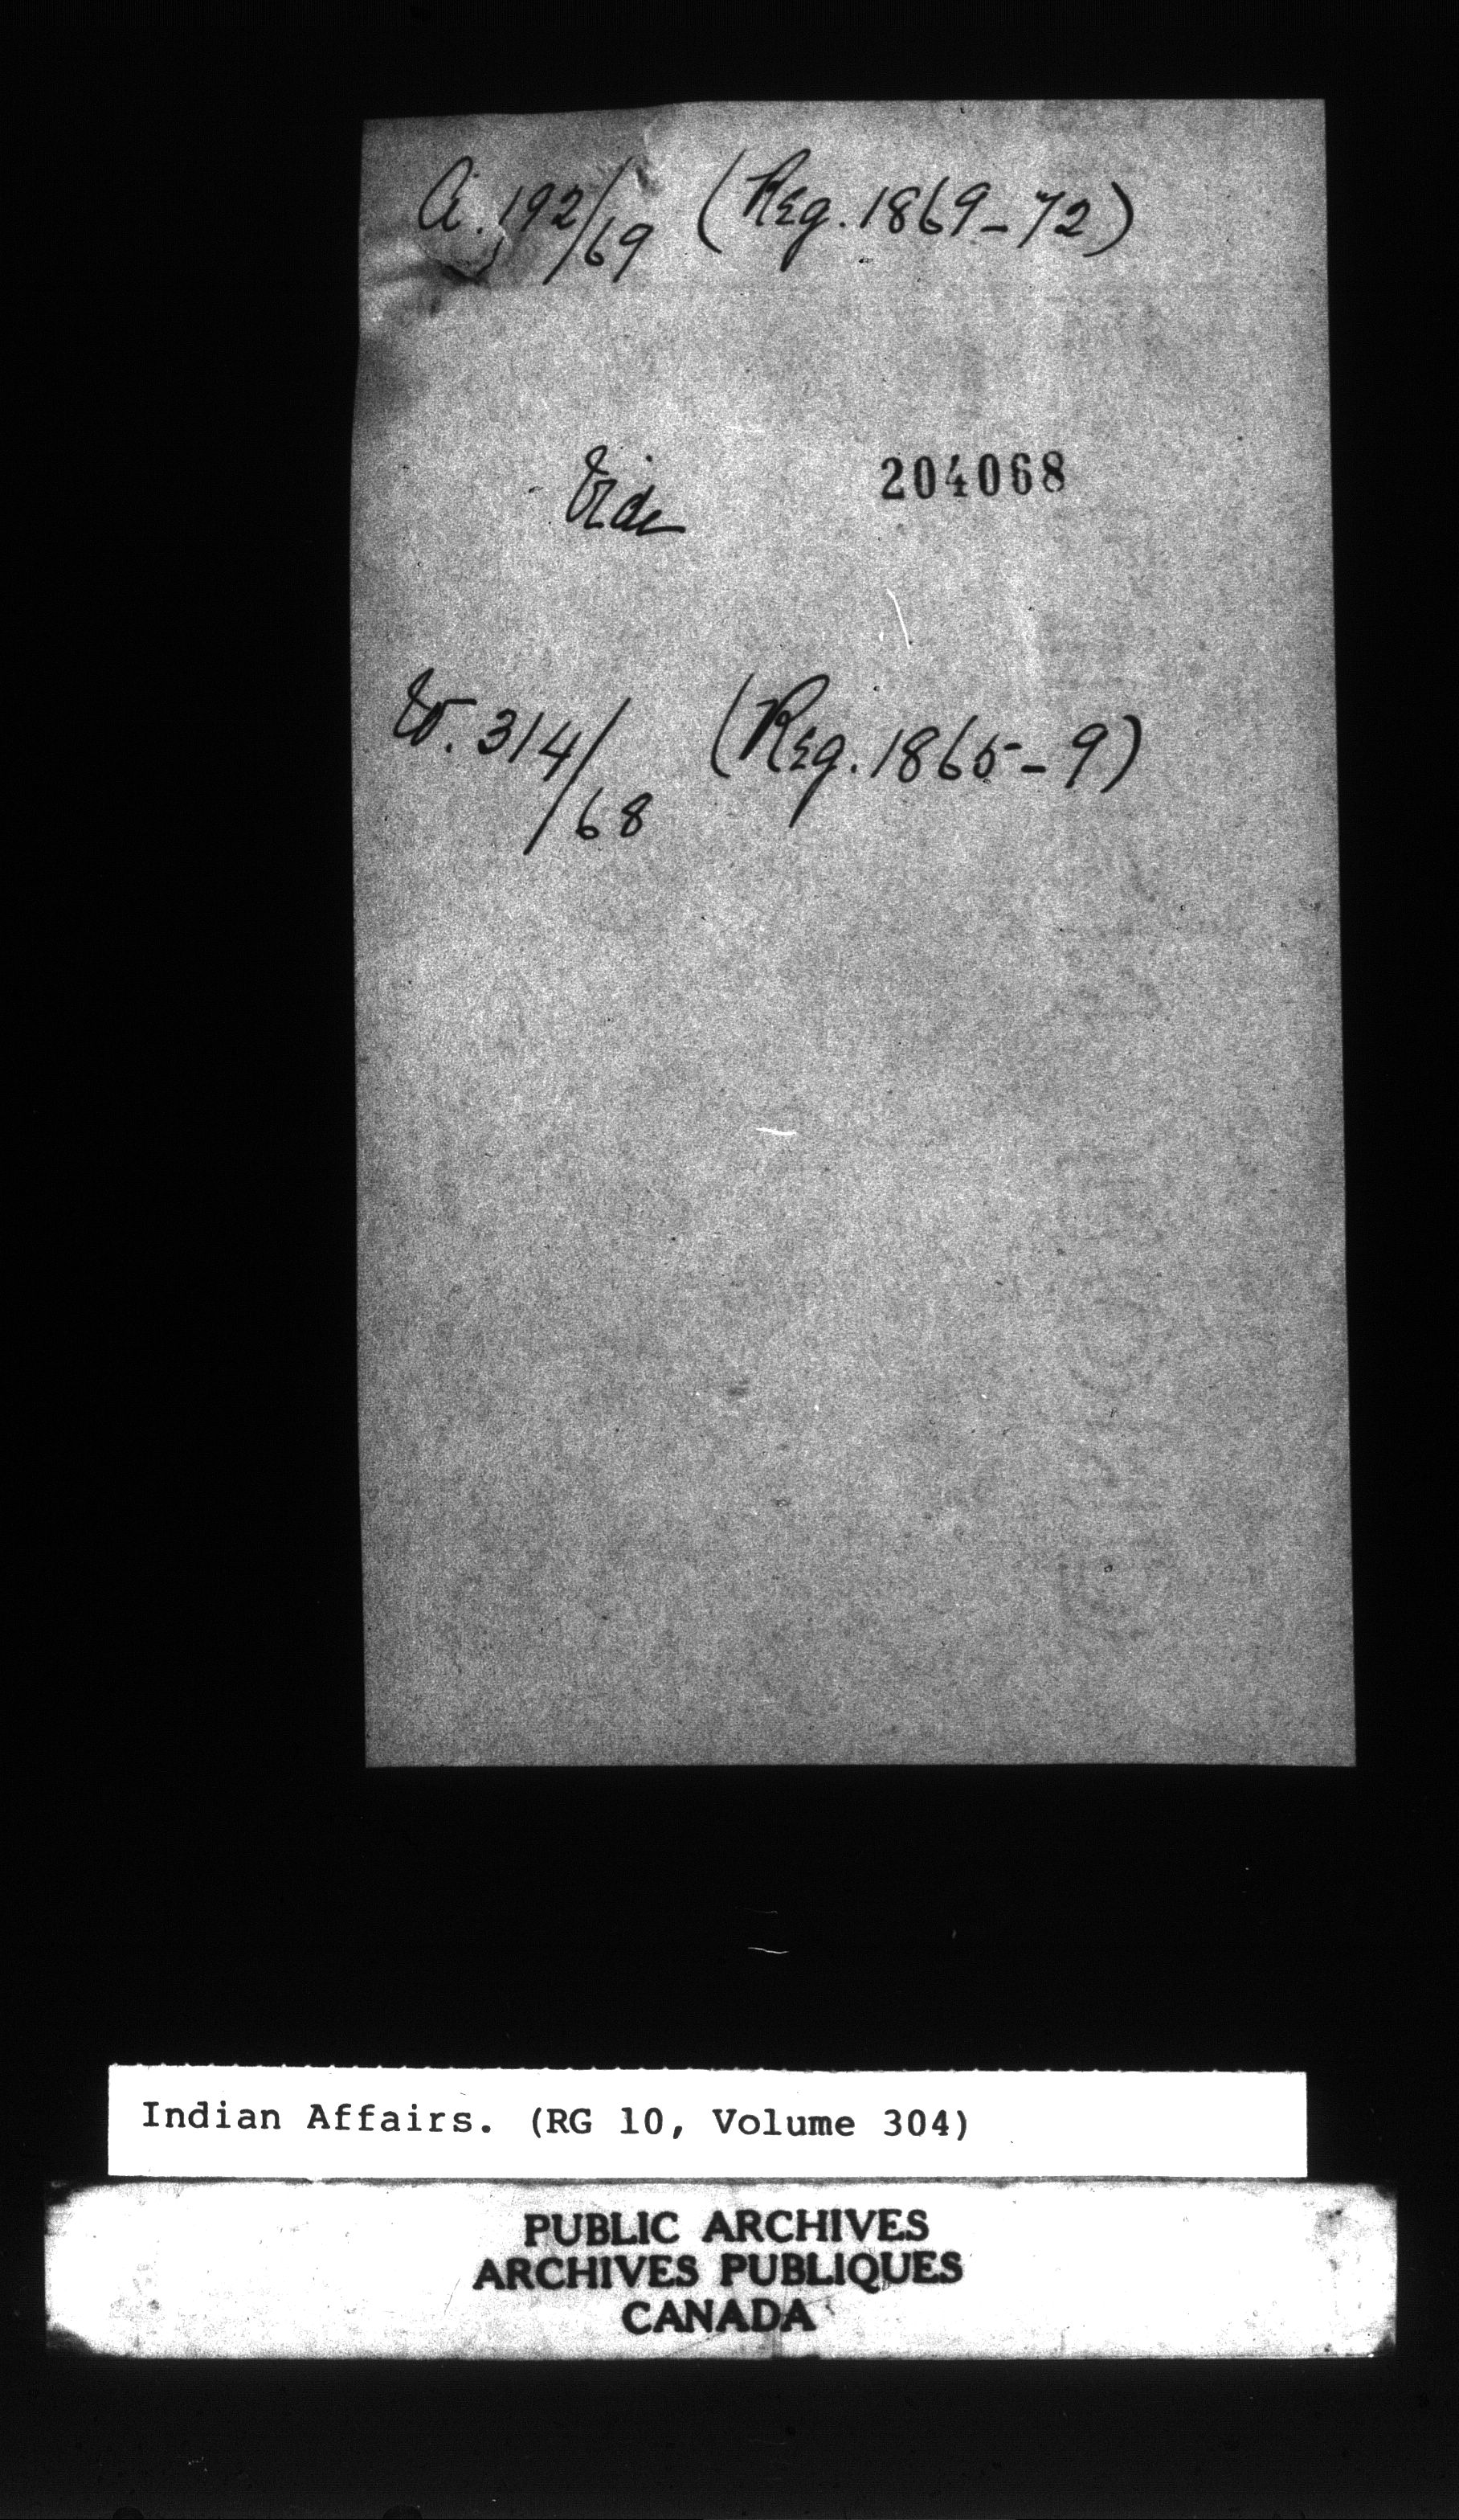 A. 192/69 (Reg. 1869-72)
Vide 204068
W. 314/68 (Reg. 1865-9)
Indian Affairs. (RG 10, Volume 304)
PUBLIC ARCHIVES
ARCHIVES PUBLIQUES
CANADA